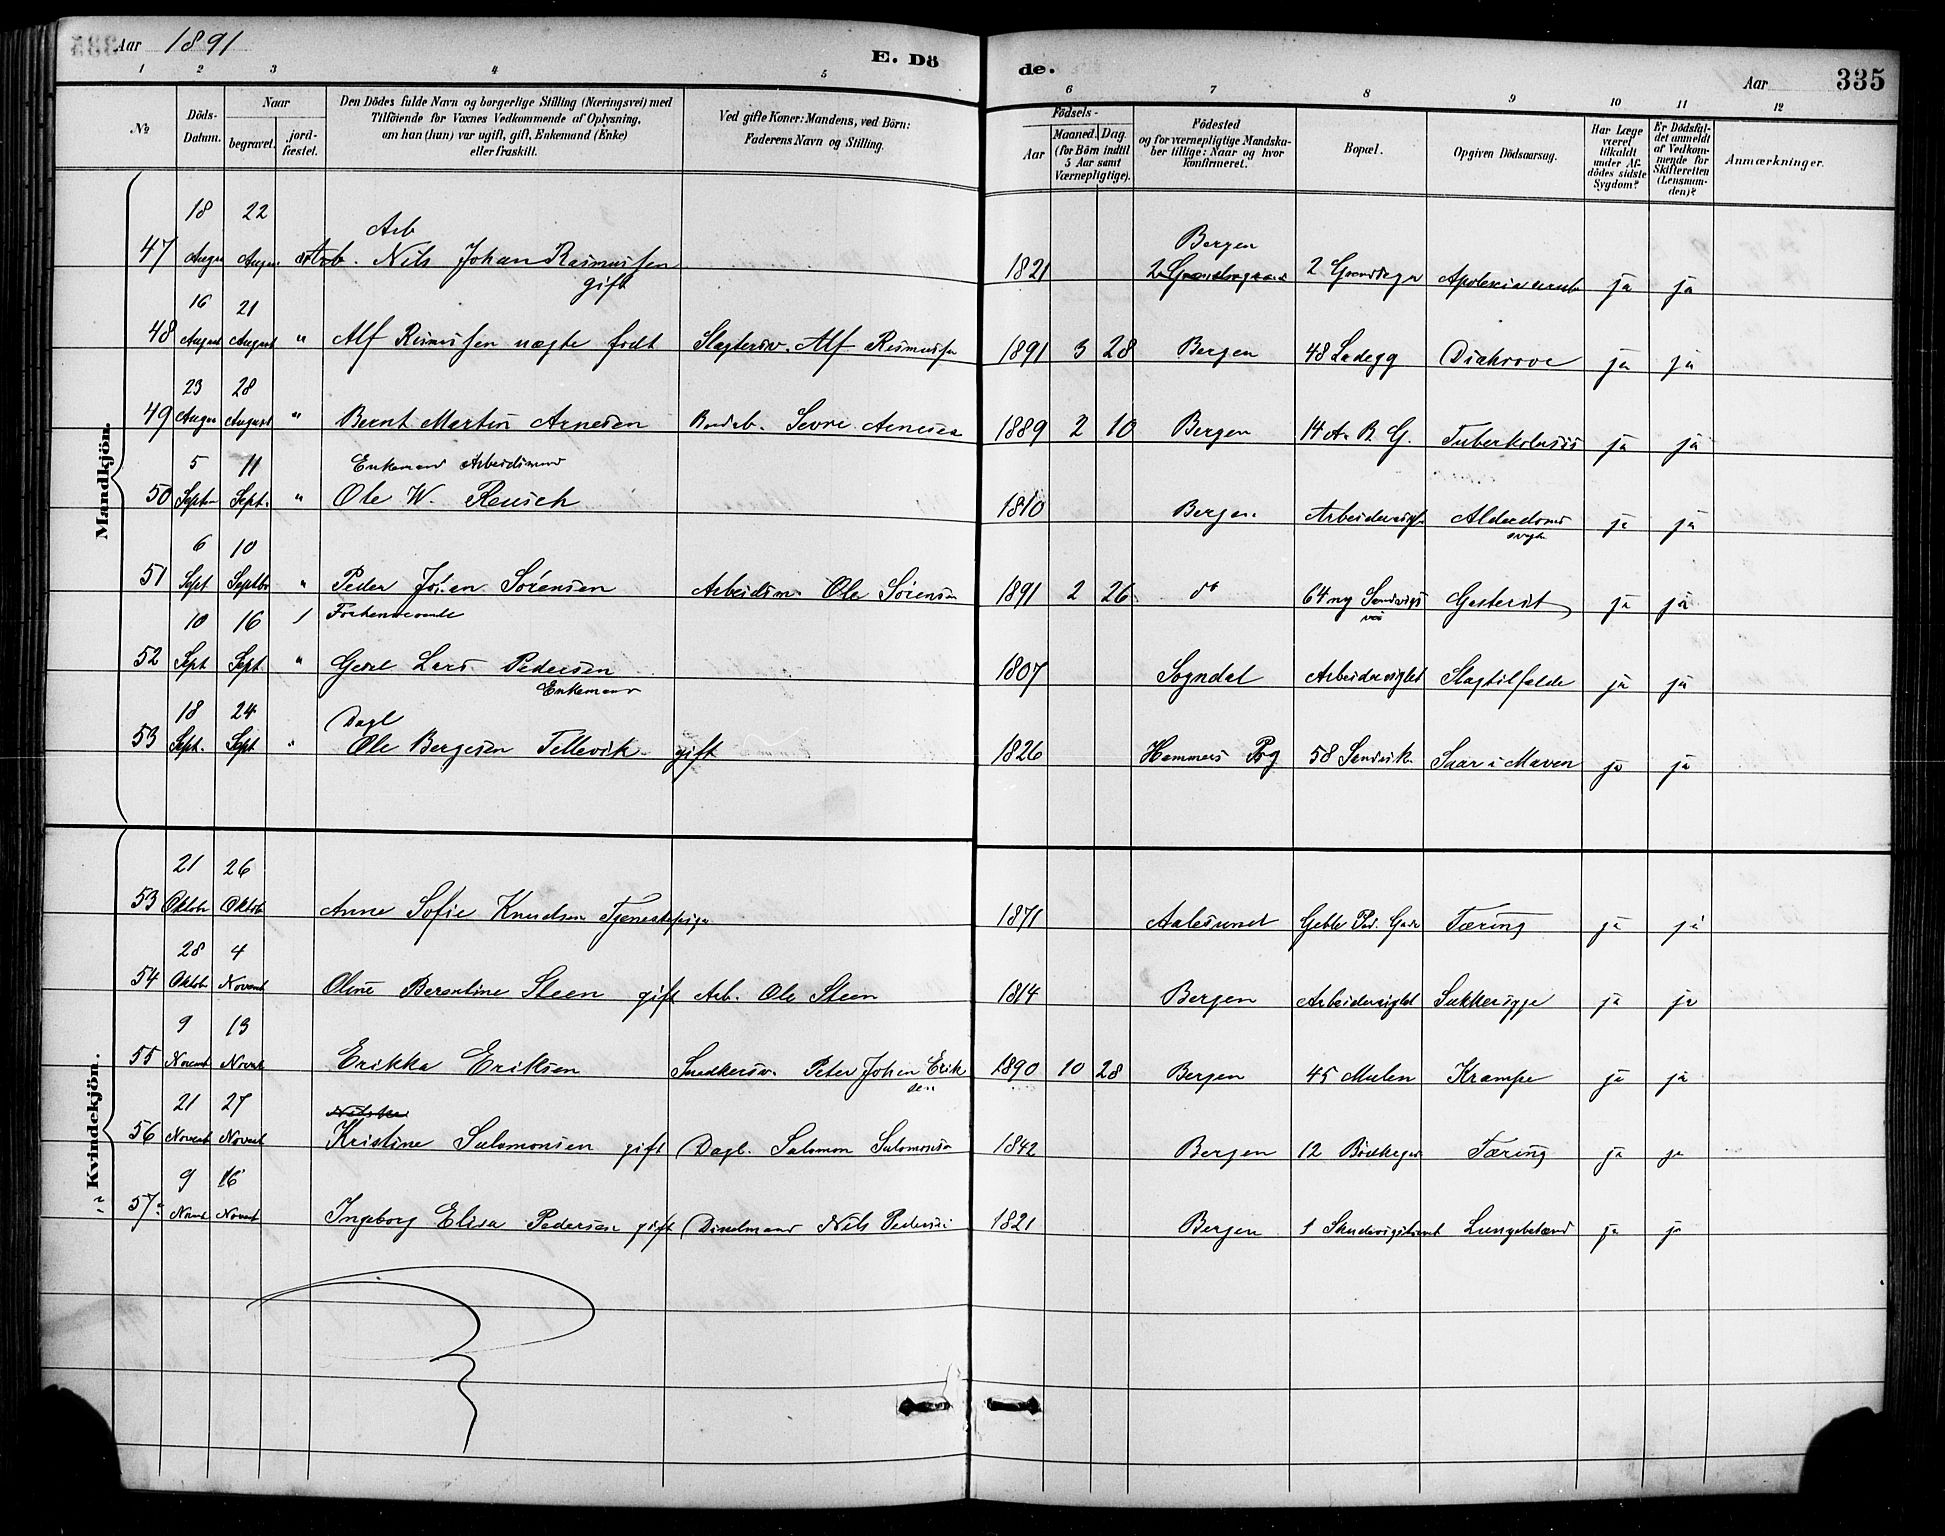 Aar 1891
E. Dö
de.
Aar
335
1 2 3 4 5 6 7 8 9 10 11 12
№
Döds-Datum.
Naar
begravet.
jord-fæstet.
Den Dödes fulde Navn og borgerlige Stilling (Næringsvei) med
Tilföiende for Voxnes Vedkommende af Oplysning,
om han (hun) var ugift, gift, Enkemand (Enke)
eller fraskilt.
Ved gifte Koner: Mandens, ved Börn:
Faderens Navn og Stilling.
Födsels-
Aar
Maaned. Dag.
(for Börn indtil
5 Aar samt
Værnepligtige).
Födested
og for værnepligtige Mandska-
ber tillige: Naar og hvor
konfirmeret.
Bopæl.
Opgiven Dödsaarsag.
Har Læge
været
tilkaldt
under Af-
dödes sidste
Sygdom?
Er Dödsfal-
det anmeldt
af Vedkom-
mende for
Skifteretten
(Lensman-
den)?
Anmærkninger.
Mandkjön.
18 22 Arb Bergen
47 Augu Augu Arb. Nils Johan Rasmussen 1821 2 Grøndsgr ja ja
gift
16 21
48 August August " Alf Rasmussen uægte født Slagtersv. Alf Rasmussen 1891 3 28 Bergen 48 Ladegg ja ja
23 28
49 Augu August " Bernt Martin Arnesen Arnesen 1889 2 10 Bergen 14 A. B. G. Tuberkulosis ja ja
5 11 Enkemand Arbeidsmand
50 Septr Sept. " Ole W. Reusch 1810 Bergen Alderdoms ja ja
svagh
6 10
51 Sept Septbr " Peder Johan Sörensen Arbeidsm. Ole Sörensen 1891 2 26 do 64 ny Sandvigs ja ja
vei
10 16
52 Sept Sept " Lars Pedersen 1807 Sogndal Slagtilfælde ja ja
Enkemand
18 24 Dagl
53 Sept. Sept " Ole Bergesen Tellevik gift 1826 Hammers Prg 58 Sandvik Saar i Maven ja ja
Kvindekjön.
21 26
53 Oktobr Oktob Anne Sofie Knudsen Tjenestepige 1871 Aalesund Geble Ped. Gade Tæring ja ja
28 4
54 Oktob Novemb Oline Berentine Steen gift Arb. Ole Steen 1814 Bergen Sukkersyge ja ja
9 13
55 Novemb Novbr Erikka Eriksen Snedkersv. Peter Johan Erik 1890 10 28 Bergen 45 Mulen Krampe ja ja
sen
21 27
56 Novemb Novemb Kristine Salomonsen gift Dagl. Salomon Salomonsen 1842 Bergen 12 Tæring ja ja
9 16
57 Novemb Novemb Ingeborg Elisa Pedersen gift Nils Pedersen 1821 Bergen 1 Lungebetænd ja ja